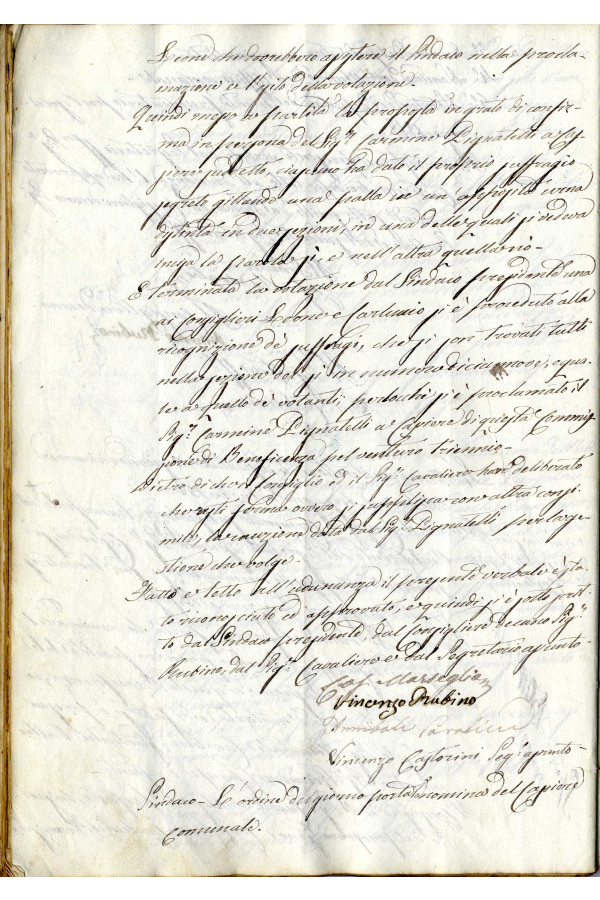 Leone che dovrebbero assistere il Sindaco nella procla-
mazione ce l'esito della votazione.
Quindi messo a partito la proposta in grado di confer-
ma in persona del Sig.r Carmine Pignatelli a Cas-
siere suddetto, ciascuno ha dato il proprio suffragio
segreto gittando una palla in un'apposita urna
distinta in due sezioni, in una delle quali si vedeva
messa la parola sì, e nell'altra quella nò.
E terminata la votazione dal Sindaco presidente una
ai Consiglieri Leone e Carluccio si è proceduto alla
ricognizione de' suffragi, che si son trovati tutti
nella sezione del sì in numero di diciannove, egua-
le a quello de' votanti perlocchè si è proclamato il
Sig.r Carmine Pignatelli a Cassiere di questa Commis-
sione di Beneficenza pel venturo triennio.
Dietro di che il Consiglio ed il Sig.r Cavaliero han deliberato
che resti ferma ovvero si supplisca con altra consi-
mile, la cauzione data dal Sig.r Pignatelli per la ge-
stione che volge.
Fatto e letto all'adunanza il presente verbale è sta-
to riconosciuto ed approvato, e quindi si è sottoscrit-
to dal Sindaco presidente, dal Consigliere decano Sig.r
Rubino, dal Sig.r Cavaliero e dal Segretario assunto.
Marseglia
Vincenzo Rubino
Annibale Cavaliero
Vincenzo Castorini Seg.o assunto.
Sindaco - L'ordine del giorno porta la nomina del Cassiere
Comunale.